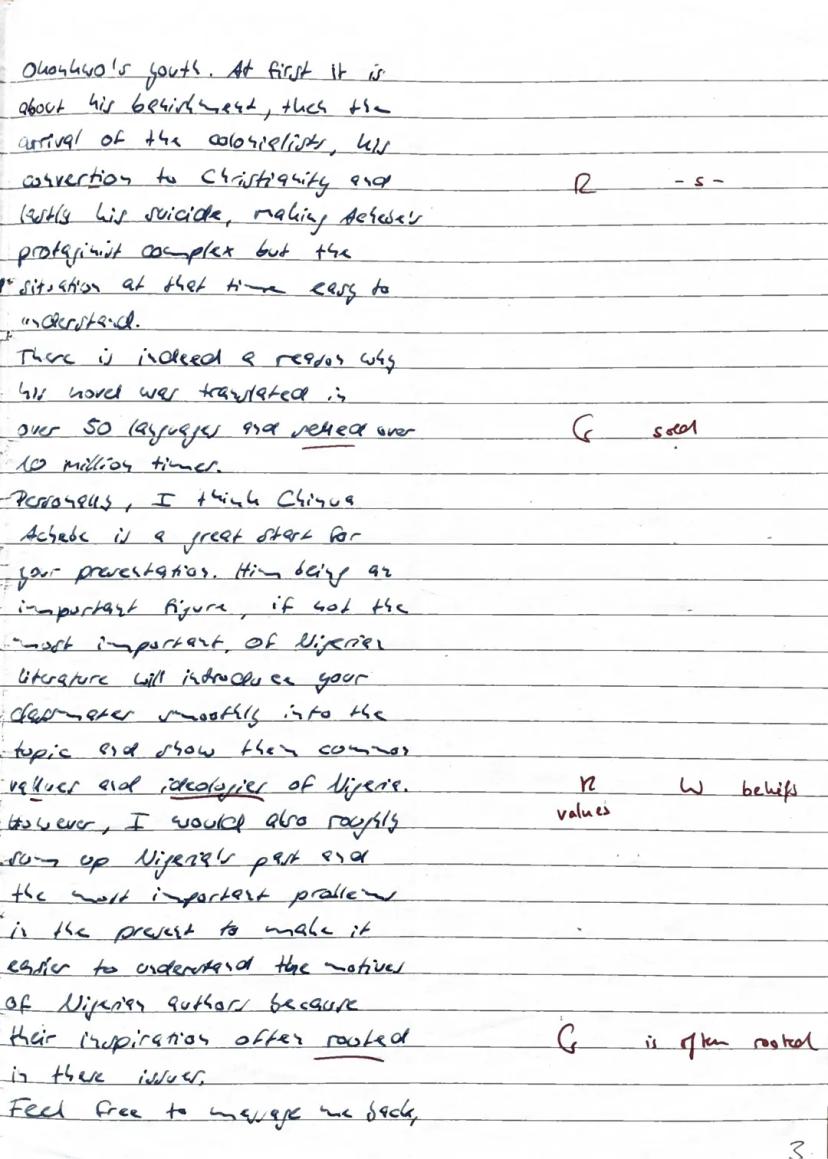 Okonkwo's youth. At first it is
about his banishment, then the
arrival of the colonialists, his
convertion to Christianity and R -s-
lastly his suicide, making Achebe's
protaginist complex but the
situation at that time easy to
understand.
There is indeed a reason why
his novel was translated in
over 50 languages and selled over G sold
10 million times.
Personally, I think Chinua
Achebe is a great start for
your presentation. Him being an
important figure, if not the
most important, of Nigerian
literature will introduce your
classmates smoothly into the
topic and show them common
vallues and ideologies of Nigeria. R values W beliefs
However, I would also roughly
sum up Nigeria's past and
the most important problems
in the present to make it
easier to understand the motives
of Nigerian authors because
their inspiration often rooted G is often rooted
in these issues.
Feel free to message me back,
3